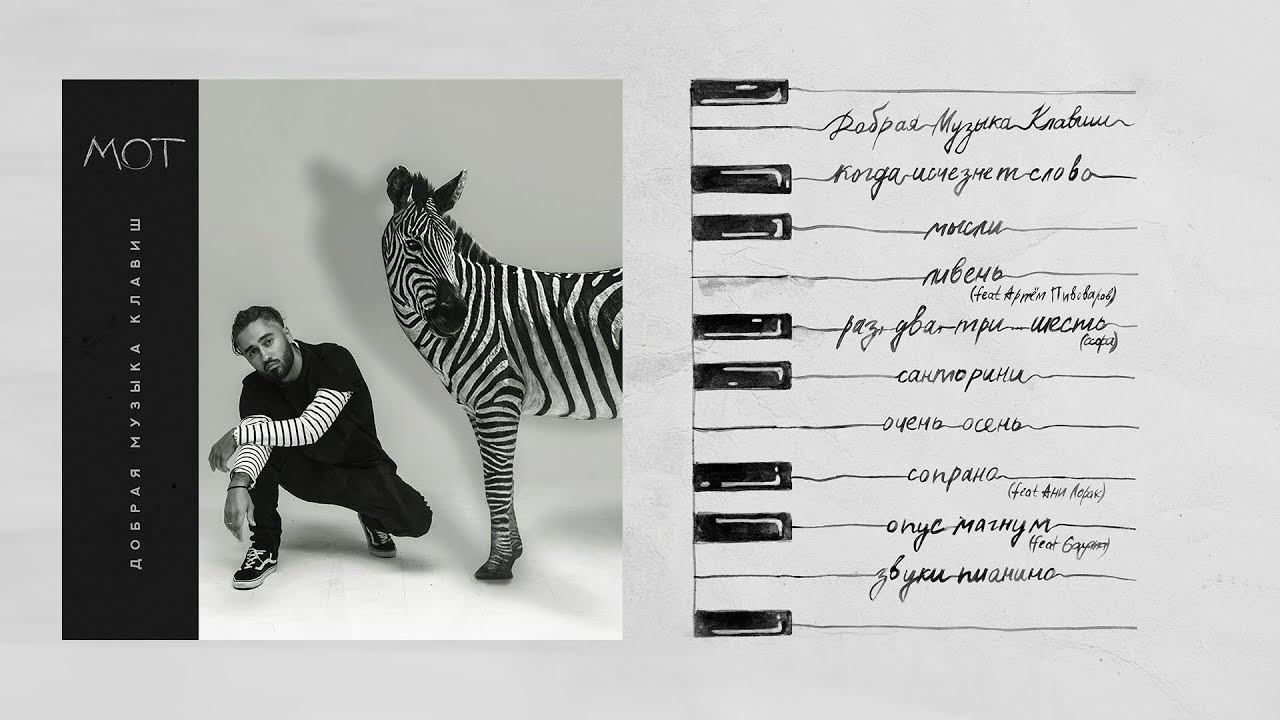 МОТ
ДОБРАЯ МУЗЫКА КЛАВИШ
Добрая Музыка Клавиш
когда исчезнет слово
мысли
ливень
(feat Артём Пивоваров)
раз, два, три ... шесть
санторини
очень осень
сопрано
(feat Ани Лорак)
опус магнум
(feat
звуки пианино